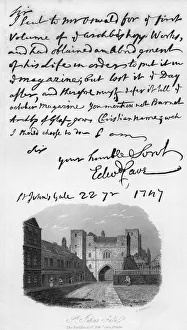 Sir
I sent to Mr Oswald for ye first
Volume of ye Archbishops Works,
and had obtained an Abridgment
of his life in order to put it in
ye magazine, but lost it ye Day
after, and therefore must defer it till ye
october Magazine. You mention not Barnet
of Glasgows Christian name, wch
I should choose to do. I am
Sir
your humble Servt
Edwd Cave
St John's Gate 22 7r 1747
St. John's Gate,